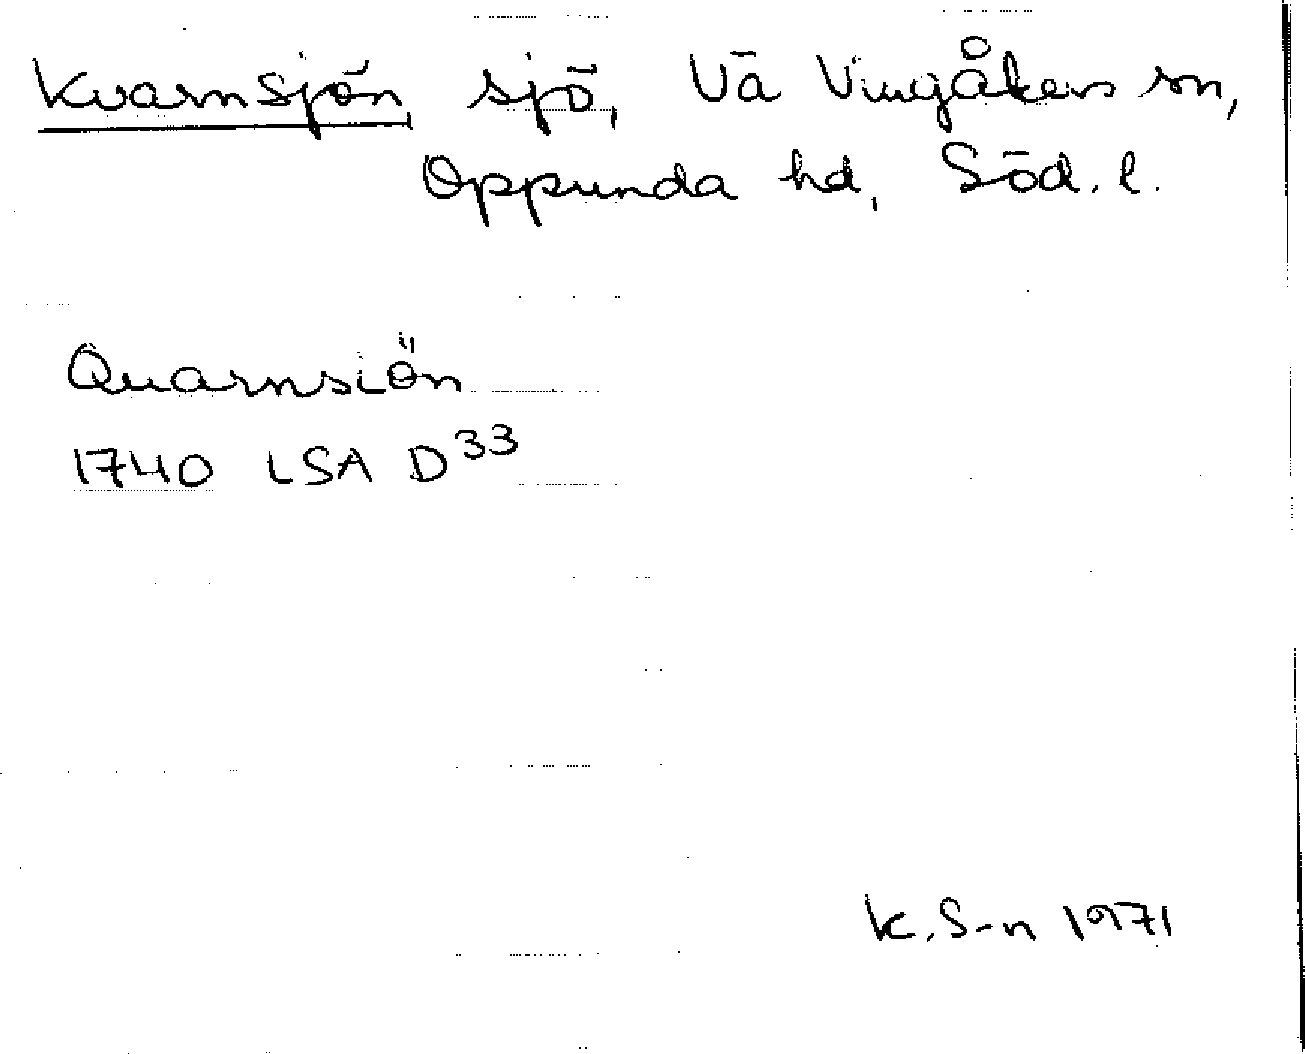 Kvarnsjön, sjö, Vä Vingåkers sn,
Oppunda hd, Söd. l.
Quarnsiön
1740 LSA D33
K. S-n 1971